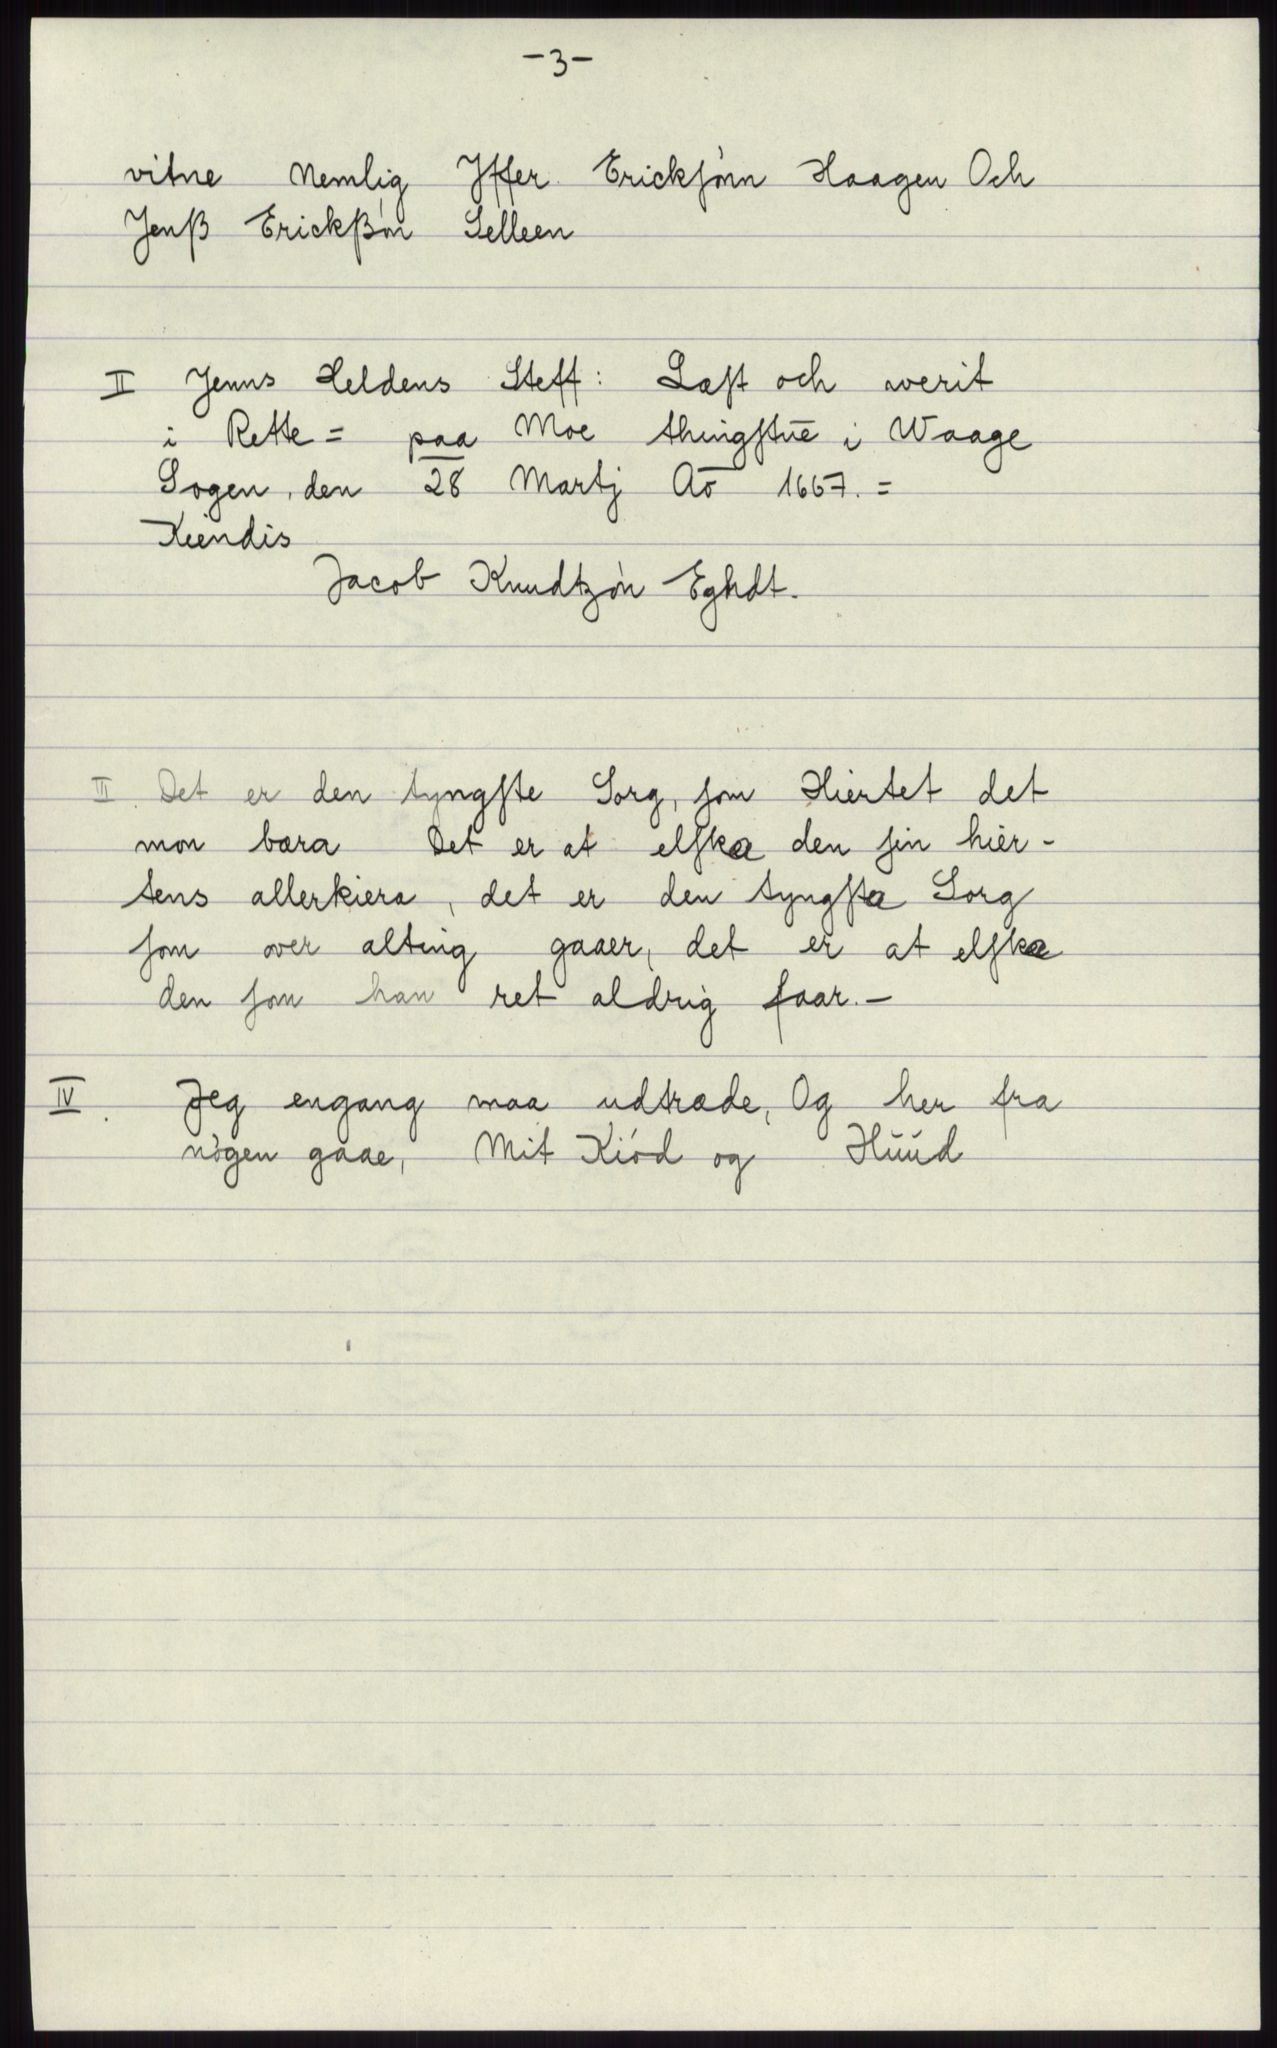 -3-
vitne Nemlig Iffer Erickſönn Haagen Och
Jenß Erickßön Selleen
II Jenns Heldens Steff: Læſt och werit
i Rette = paa Moe thingſtūe i Waage
Sogen, den 28 Martj Aō 1667. =
Kiendis
Jacob Knudtzón Eghdt.
III. Det er den tyngſte Sorg, ſom Hiertet det
mon bæra Det er at elſka den ſin hier-
tens allerkiera, det er den tyngſta Sorg
ſom over alting gaaer, det er at elſka
den ſom han ret aldrig faar.-
IV. Jeg engang maa udtræde, Og her fra
nögen gaae, Mit Kiód og Húúd